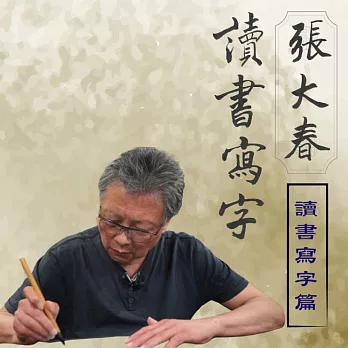 張大春
讀書寫字
讀書寫字篇